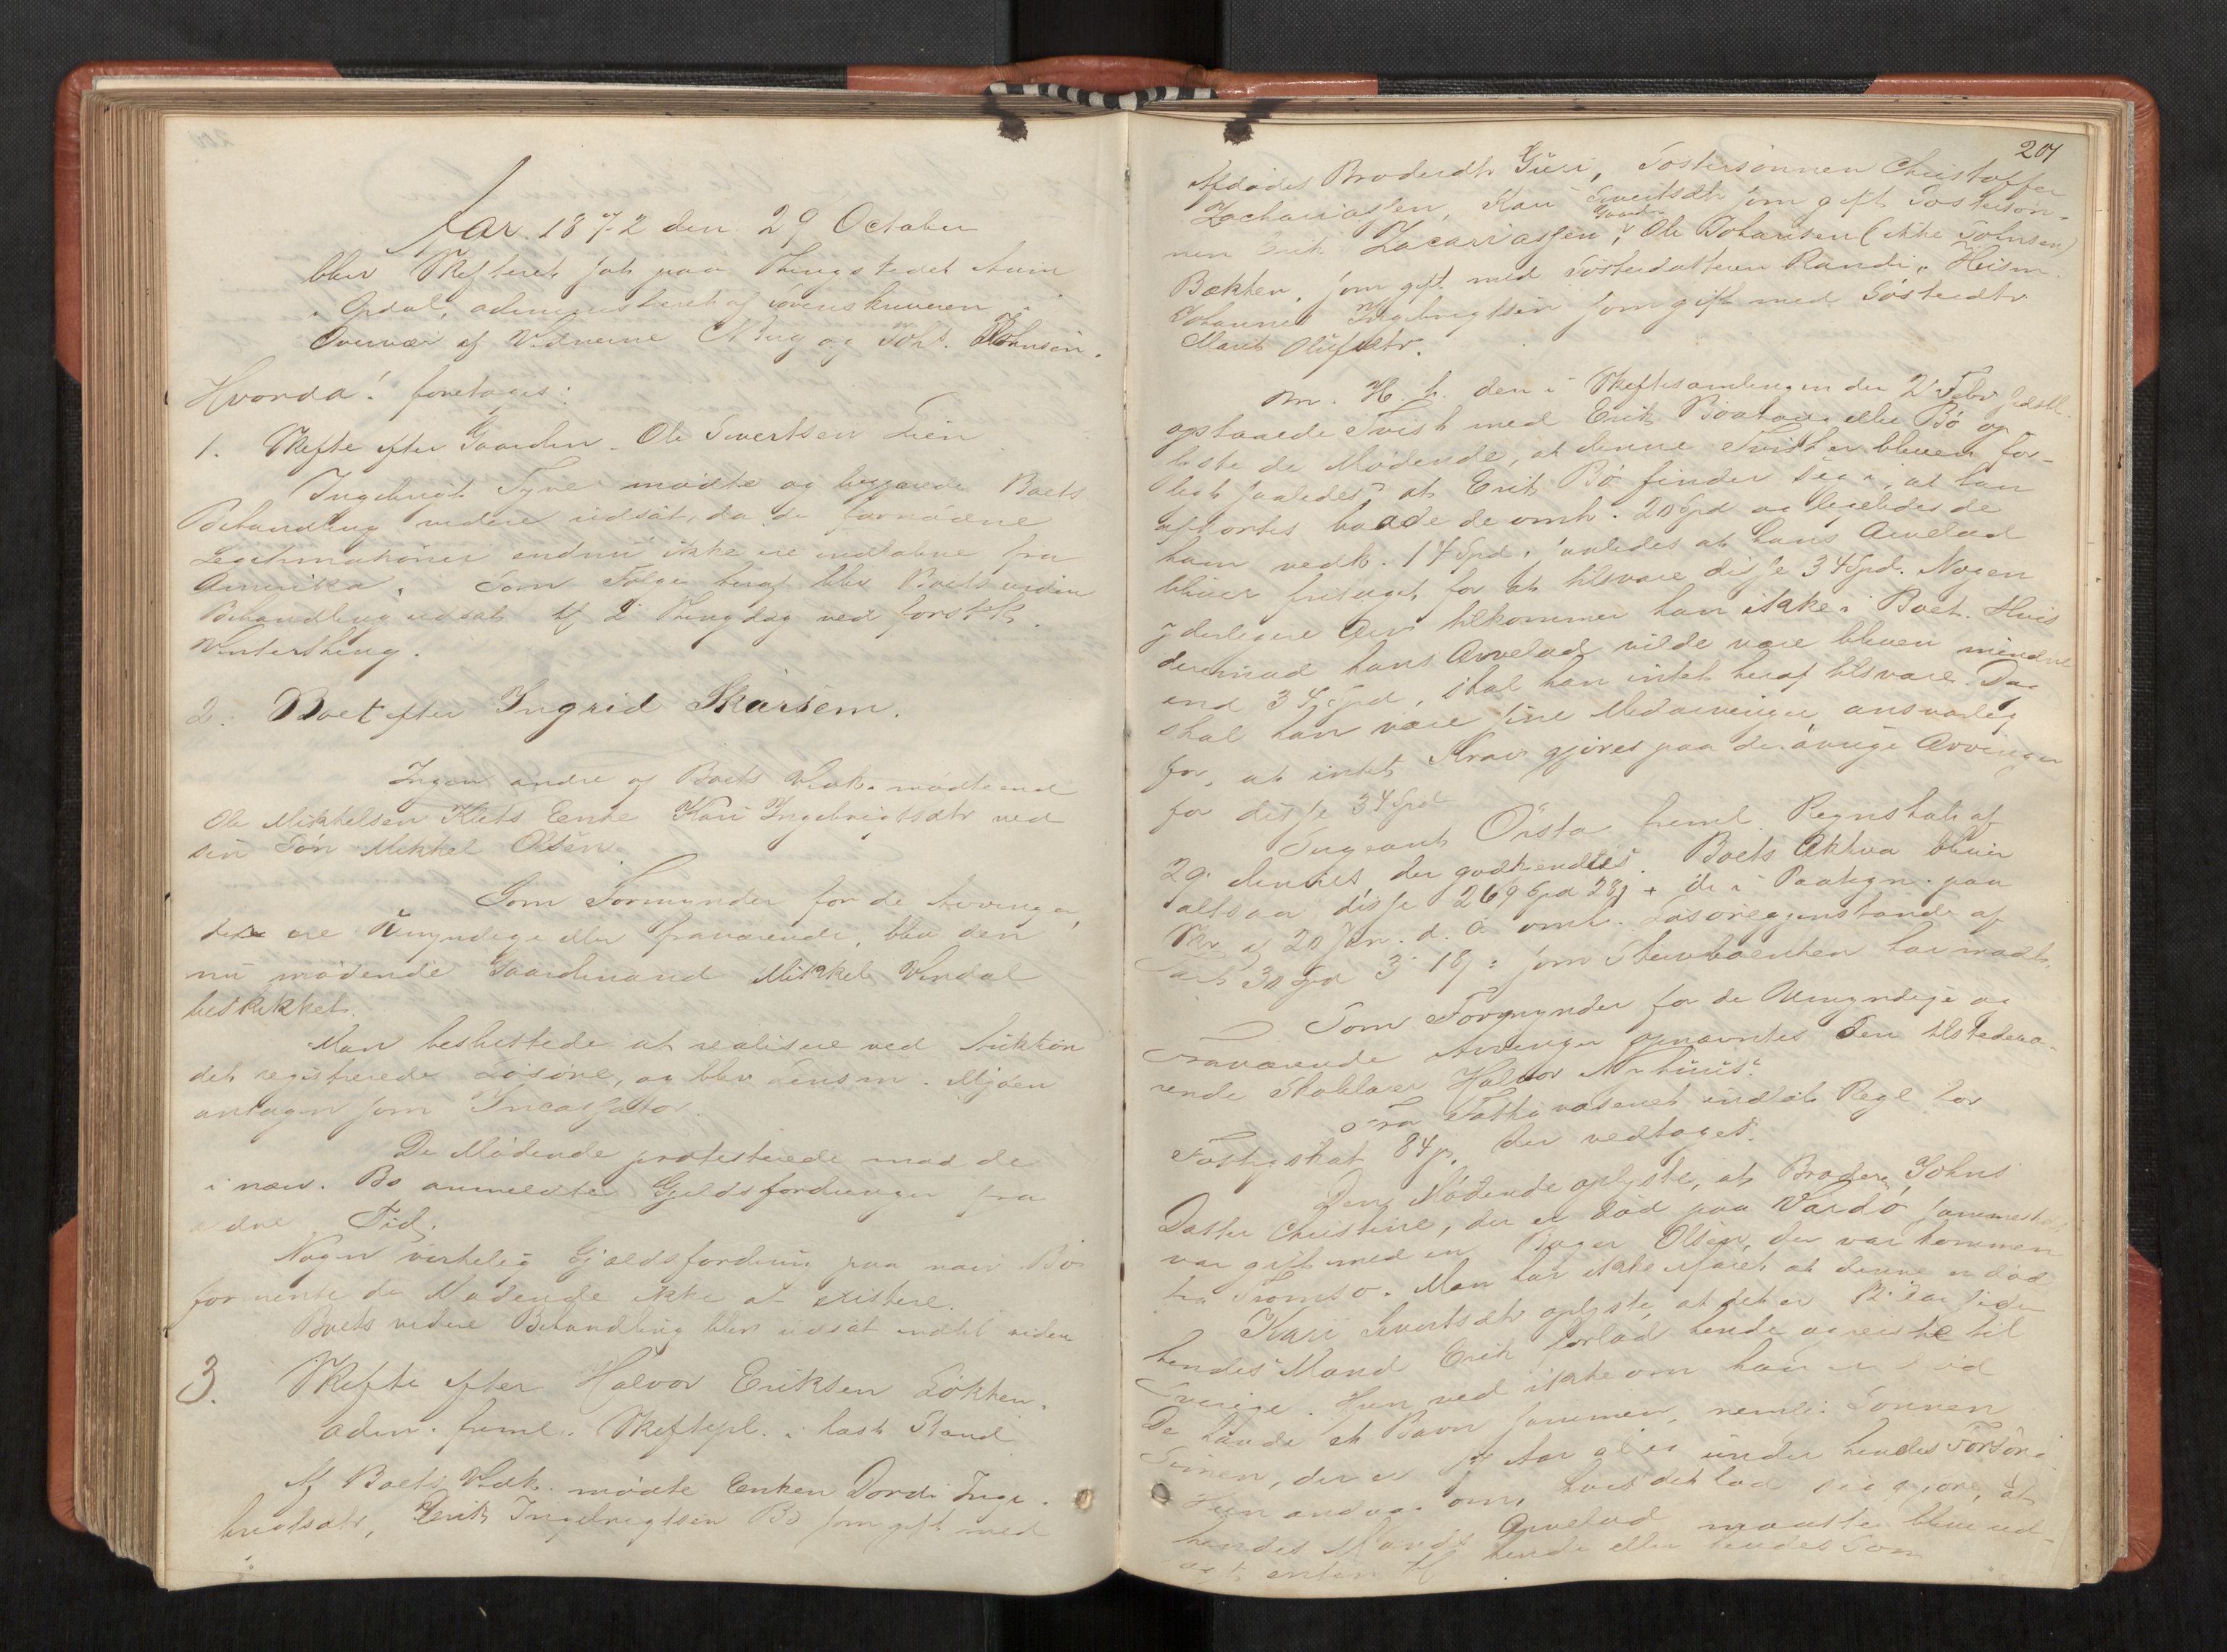 Aar 1872 den 29 October
blev Skifteret sat paa Thingstedet Aune
i Opdal, administreret af Sorenskriveren i
Overvær af Vidnerne og Joh. Johnsen.
Hvorda! foretoges:
1. Skifte efter Gaardm. Ole Sivertsen Lien
Ingebrigt mødte og begjærede Boets
Behandling videre udsat, da de fornødne
Legitimationer endnu ikke ere indløbne fra
Amerika. Som Følge heraf blev Boets videre
Behandling udsat til 2 Thingdag ved førstk.
Vinterthing.
2. Boet efter Ingrid Skarsem.
Ingen andre af Boets Vedk. mødte end
Ole Mikkelsen Klets Enke Kari Ingebrigtsdtr ved
sin Søn Mikkel Olsen.
Som Formynder for de Arvinger,
der ere Umyndige eller fraværende, blev den
nu mødende Gaardmand Mikkel Vindal
beskikket.
Man besluttede at realisere ved Auktion
det registrerede Løsøre, og blev Lensm. Mjøen
antagen som Incassator.
De Mødende protesterede mod de
i nærv. Bo anmeldte Gjeldsfordringer fra
ældre Tid.
Nogen virkelig Gjældsfordring paa nærv. Bo
formente de Mødende ikke at existere.
Boets videre Behandling blev udsat indtil videre
3. Skifte efter Halvor Eriksen Løkken.
Adm. freml. Skiftepl. i læst Stand
Af Boets Vedk. mødte Enken Dordi Inge-
brigtsdtr, Erik Ingebrigtsen Bø som gift med
201
Afdødes Broderdtr Guri, Søstersønnen Christoffer
Zachariassen, Kari Sivertsdtr som gift Søstersøn-
nen Erik Zacariassen, Gaardm. Ole Johansen (ikke Johnsen)
Bækken, som gift med Søsterdatteren Randi, Husm.
Johannes Ingebrigtsen som gift med Søsterdtr
Marit Olufsdtr.
M. H. t. den i Skiftesamlingen den 2 Febr
opstaaede Tvist med Erik eller Bø op-
lyste de Mødende, at denne Tvist er bleven for-
ligt saaledes, at Erik Bø finder sig i, at han
afkortes baade de omh. 20 Spd og ligeledes de
ham vedk. 14 Spd, saaledes at hans Arvelod
bliver fritaget for at tilsvare disse 34 Spd. Nogen
yderligere Arv tilkommer han ikke i Boet. Hvis
derimod hans Arvelod vilde være bleven mindre
end 34 Spd, skal han intet heraf tilsvare. Dog
skal han være sine Medarvinger ansvarlig
for, at intet Krav gjøres paa de øvrige Arvinger
for disse 34 Spd
Sergeant Örsta freml. Regnskab af
29 dennes, der godkjendtes. Boets Aktiva bliver
altsaa disse 269 Spd 28 + de i Paategn. paa
Skr. af 20 Jan. d. A omh. Løsøregjenstande af
Værd 30 Spd 3 18, som Stervboenken har modt.
Som Formynder for de Umyndige og
fraværende Arvinger opnævntes den tilstedevæ-
rende Halvor
Fra Fattigvæsenet indløb Regl. for
Fattigskat 84 der vedtoges.
Den Mødende oplyste, at Broderen Johns
Datter Christine, der er død paa Vardø sammesteds
var gift med en Olsen, der var kommen
fra Tromsø. Man har ikke erfaret at denne er død
Kari Sivertsdtr oplyste, at det er 12 Aar siden
hendes Mand Erik forlod hende og reiste til
Sverige. Hun ved ikke om han er død
De havde et Barn sammen, nemlig Sønnen
Simen, der er Aar og er under hendes Forsørg.
Hun andrag om, hvis det lod sig gjøre, at
hendes Mands Arvelod maatte blive ud-
lagt enten til hende eller hendes Søn